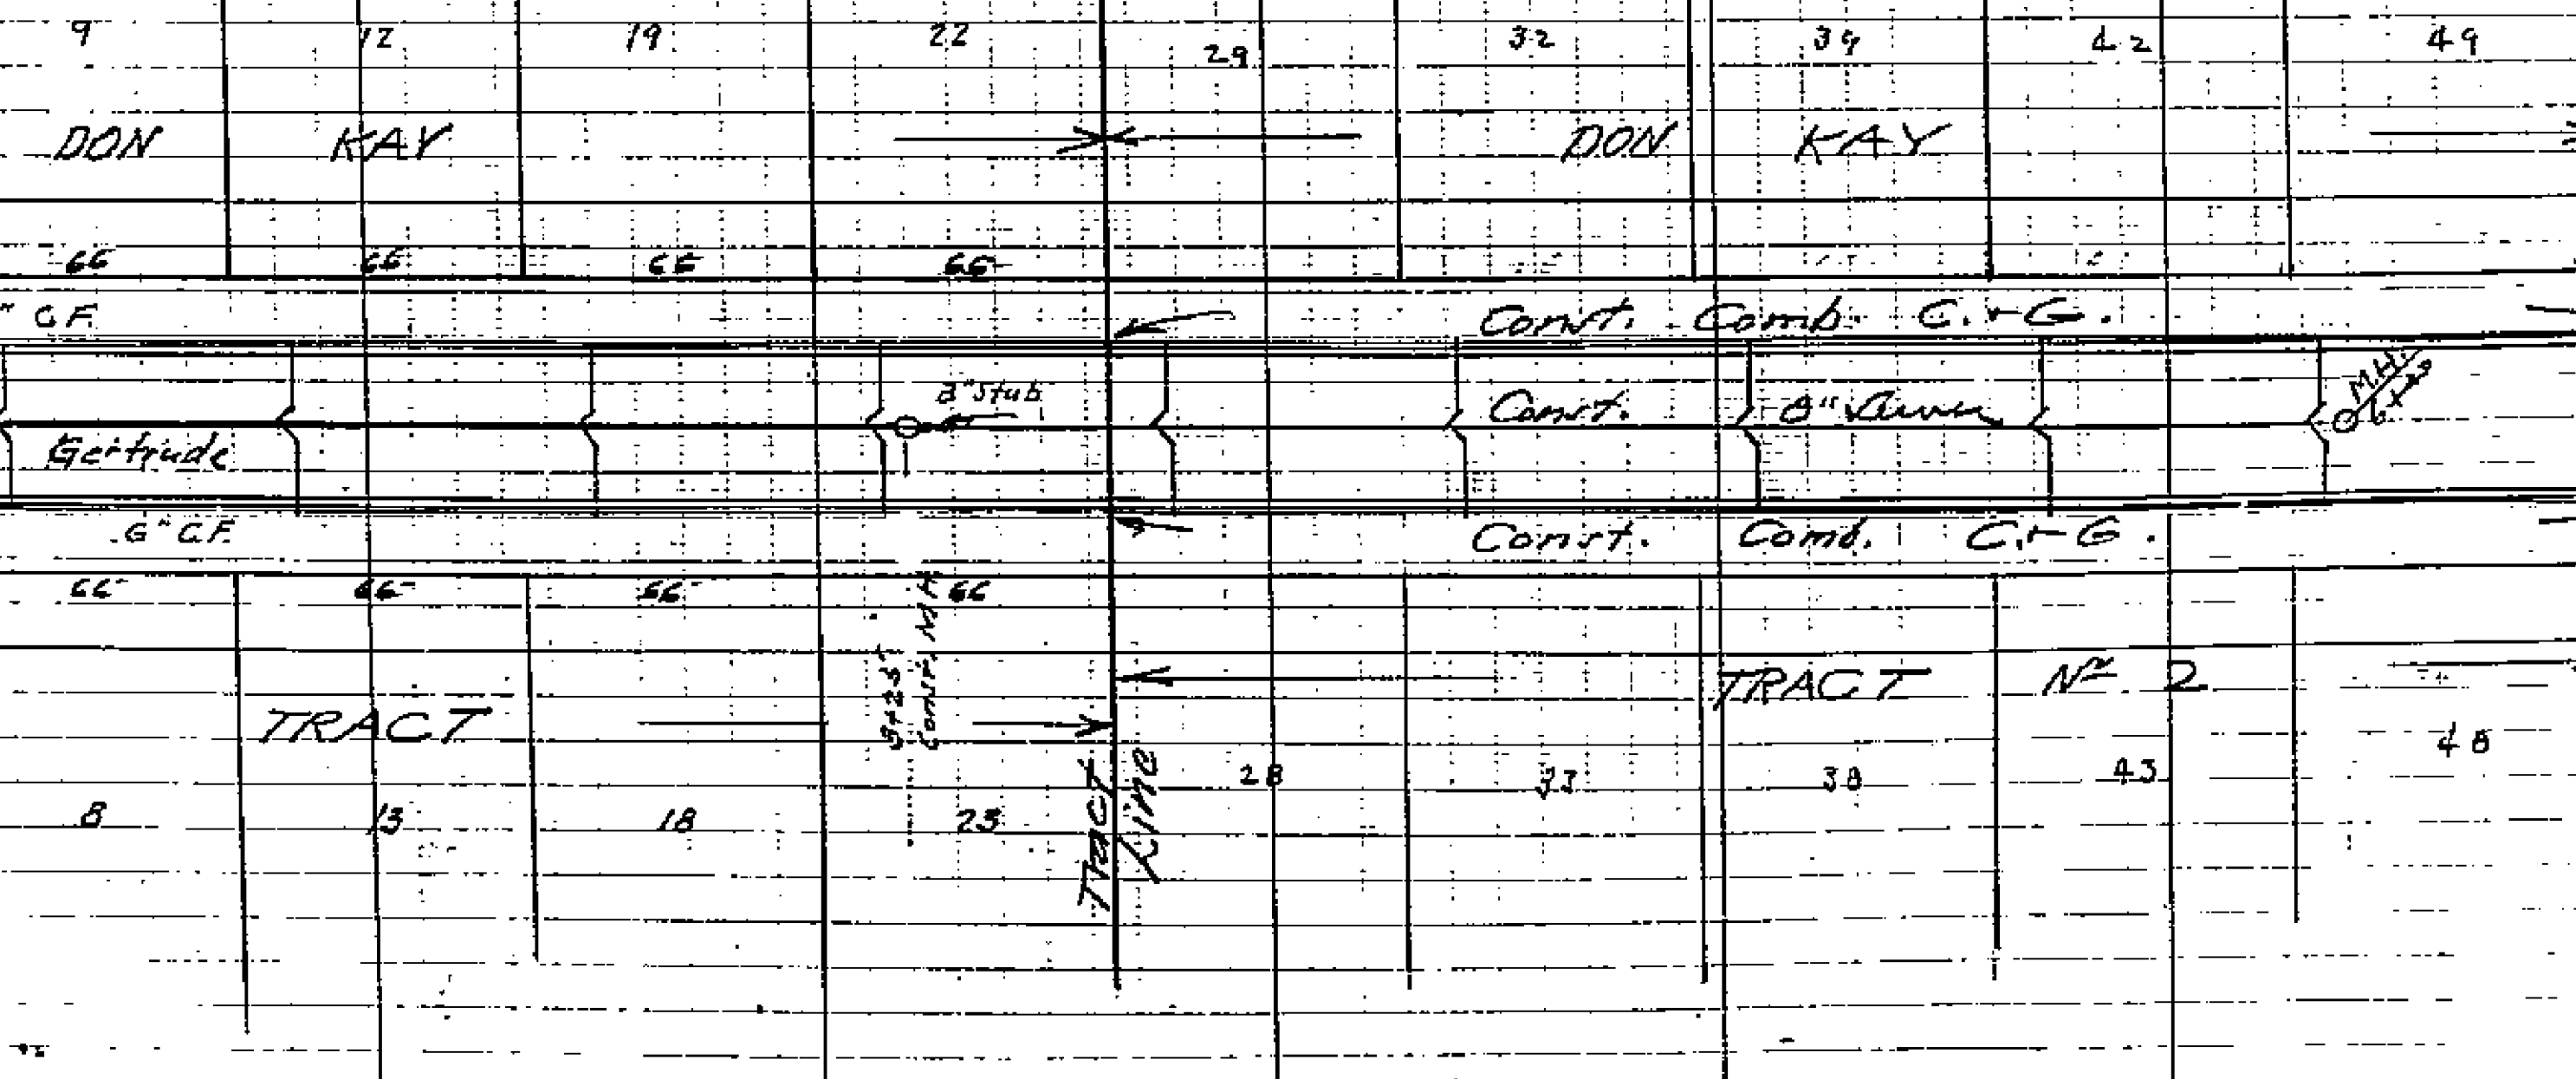 9 12 19 22 29 32 39 42 49
DON KAY DON KAY
66 66 66 66
" C.F. Const. Comb. C. + G.
8" Stub Const. 8" Sewer M.H.
Gertrude
6" C.F. Const. Comb. C. + G.
66 66 66 66
Const. M.H.
TRACT TRACT Nº 2
Tract Line
8 13 18 23 28 33 38 43 48